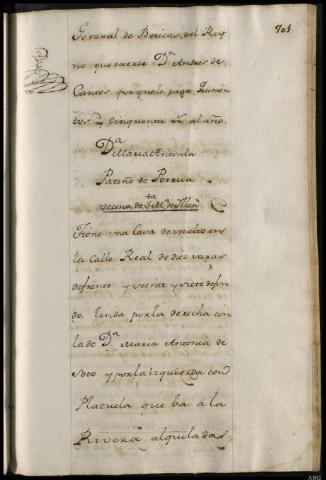 701
General de Boticas del Rey
no que exerce Dn Andres de
Cancos por que le paga Quinien
tos y cinquenta rrs al año
Da Maria Antonia
Patiño de Porrua
vecina de Sta Ma de Illan
Tiene una Casa de un alto en
la Calle Real de diez varas
de frente y veinte y siete de fon
do, linda por la derecha con
la de Da Maria Antonia de
Soto y por la izquierda con
Plazuela que ba a la
Rivera alquiladas
ARG